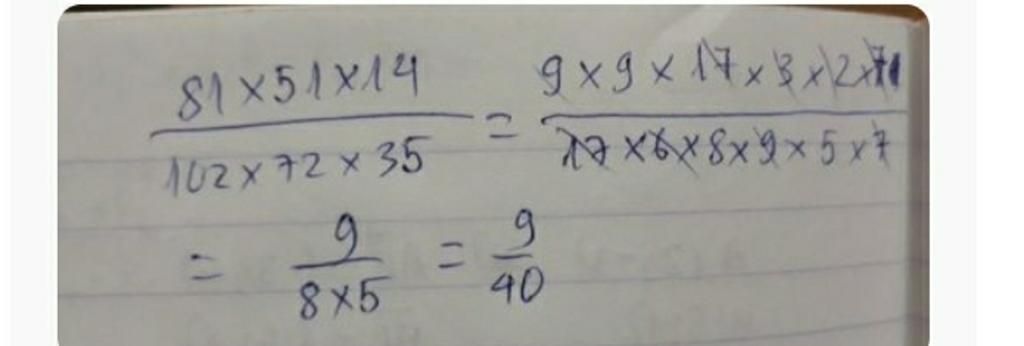 81×51×14 / 102×72×35 = 9×9×17×3×2×7 / 17×6×8×9×5×7
= 9 / 8×5 = 9 / 40